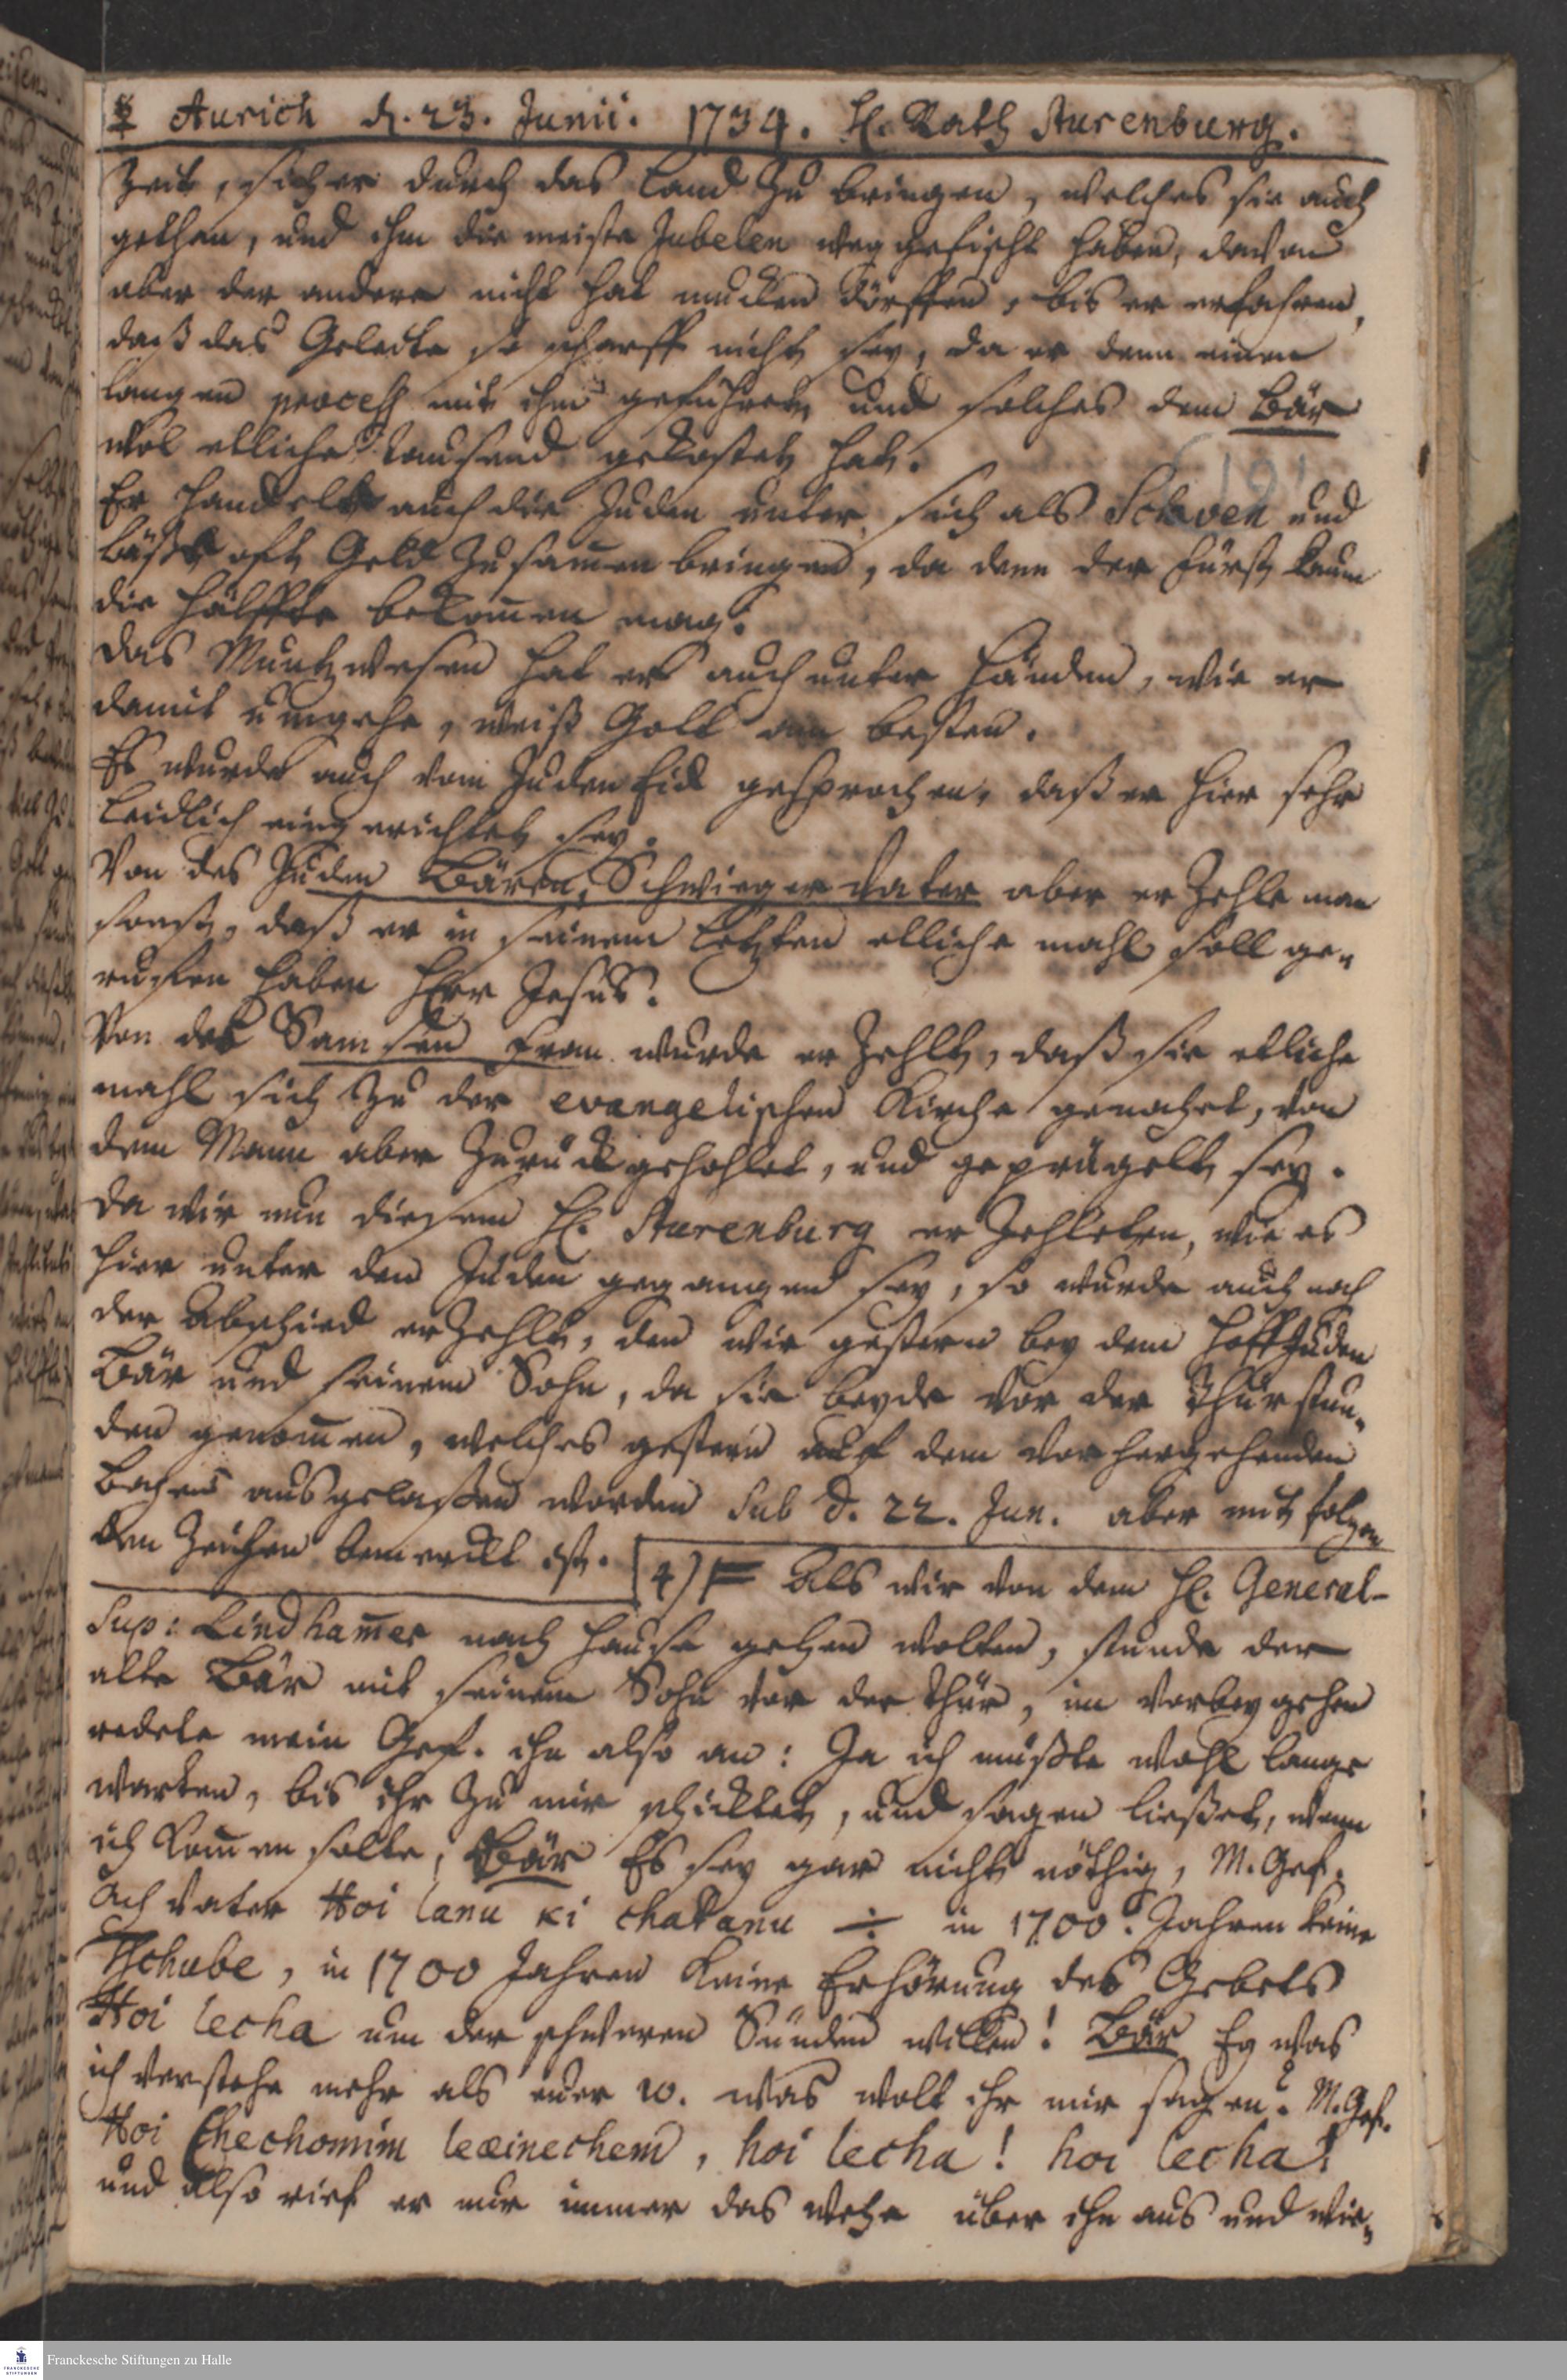 ☿ Aurich d. 23. Junii. 1734. H. Rath Sturenburg.
Zeit, sicher durch das Land zu bringen, welches sie auch
gethan, und ihm die meiste Jubelen weggefischt haben, davon
aber der andere nicht hat mucken dörffen, bis er erfahren,
daß das Geleite so scharff nicht sey, da er denn einen
langen process mit ihm geführet und solches dem Bär
wol etliche tausend gekostet hat.
Er handelt auch die Juden unter sich als Sclaven und
läßt oft Geld zusammen bringen, da denn der Fürst kaum
die Hälffte bekommen mag.
Das Muntzwesen hat er auch unter Händen, wie er
damit umgehe, weiß Gott am besten.
Es wurde auch vom Juden Eid gesprochen, daß er hier sehr
leidlich eingerichtet sey.
Von des Juden Bären, Schwieger Vater aber erzehlte man
sonst, daß er in seinem Letzten etliche mahl soll ge-
ruffen haben HErr Jesus.
Von des Samson Frau wurde erzehlt, daß sie etliche
mahl sich zu der evangelischen Kirche genahet, von
dem Mann aber zurückgehohlet, und geprügelt sey.
Da wir nun diesem H. Sturenburg erzehleten, wie es
hier unter den Juden gegangen sey, so wurde auch noch
der Abschied erzehlt, den wir gestern bey dem Hoffjuden
Bär und seinem Sohn, da sie beyde vor der Thür stun-
den genommen, welches gestern auf dem vorhergehenden
Bogen ausgelaßen worden sub d. 22. Jun. aber mit folgen
den Zeichen bemerckt ist. 4) F Als wir von dem H. General-
Sup: Lindhamer nach Hause gehen wolten, stunde der
alte Bär mit seinem Sohn vor der Thür, im vorbeygehen
redete mein Gef. ihn also an: Ja ich mußte wohl lange
warten, bis ihr zu mir schicktet, und sagen ließet, wenn
ich kommen solte, Bär Es sey gar nicht nöthig, M. Gef.
Ach Vater Hoi lanu ki chatanu ÷ in 1700. Jahren keine
Tschube, in 1700 Jahren keine Erhörung des Gebets
Hoi lecha um der schweren Sünden willen! Bär Ey was
ich verstehe mehr als euer 10. was wolt ihr mir sagen? M. Gef.
Hoi Chechomim leæinechem, hoi lecha! hoi lecha!
und also rief er nur immer das wehe über ihn aus und wie-
Franckesche Stiftungen zu Halle